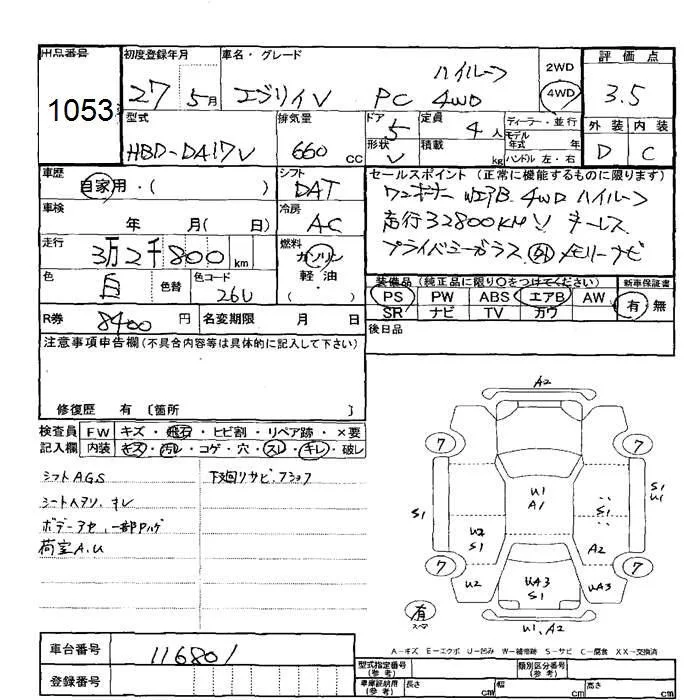 出品番号 初度登録年月 車名・グレード ハイルーフ 2WD 評価点
1053 27 5月 エブリイV PC 4WD 4WD 3.5
型式 排気量 ドア 5 定員 4人 ディーラー・並行 外装 内装
HBD-DA17V 660 CC 形状 V 積載 kg モデル年式 年 ハンドル 左・右 D C
車歴 自家用・( ) シフト DAT セールスポイント (正常に機能するものに限ります)
車検 年 月( 日) 冷房 AC ワンオーナー WエアB 4WD ハイルーフ
走行 3万2千800km 燃料 ガソリン 走行32800KM!! キーレス
色 白 色替 色コード 26U 軽・油 ( ) プライバシーガラス 外 メモリーナビ
装備品 (純正品に限り○をつけてください) 新車保証書
PS PW ABS エアB AW 有 無
SR ナビ TV カワ
R券 8400円 名変期限 月 日 後日品
注意事項申告欄(不具合内容等は具体的に記入して下さい)
修復歴 有 〔箇所 〕
検査員 FW キズ・飛石・ヒビ割・リペア跡・×要
記入欄 内装 キズ・汚レ・コゲ・穴・スレ・キレ・破レ
シフトAGS 下廻りサビ.
荷室A.U
A2
7 7
U1
A1
S1
S1
U1
S1
U2
S1
A2
7 7
U2
UA3
S1
UA3
有
U1、A2
A-キズ E-エクボ U-凹み W-補修跡 S-サビ C-腐食 XX-交換済
車台番号 116801
登録番号
型式指定番号(参考) 類別区分番号(参考)
車庫証明用(参考) 長さ cm 幅 cm 高さ cm